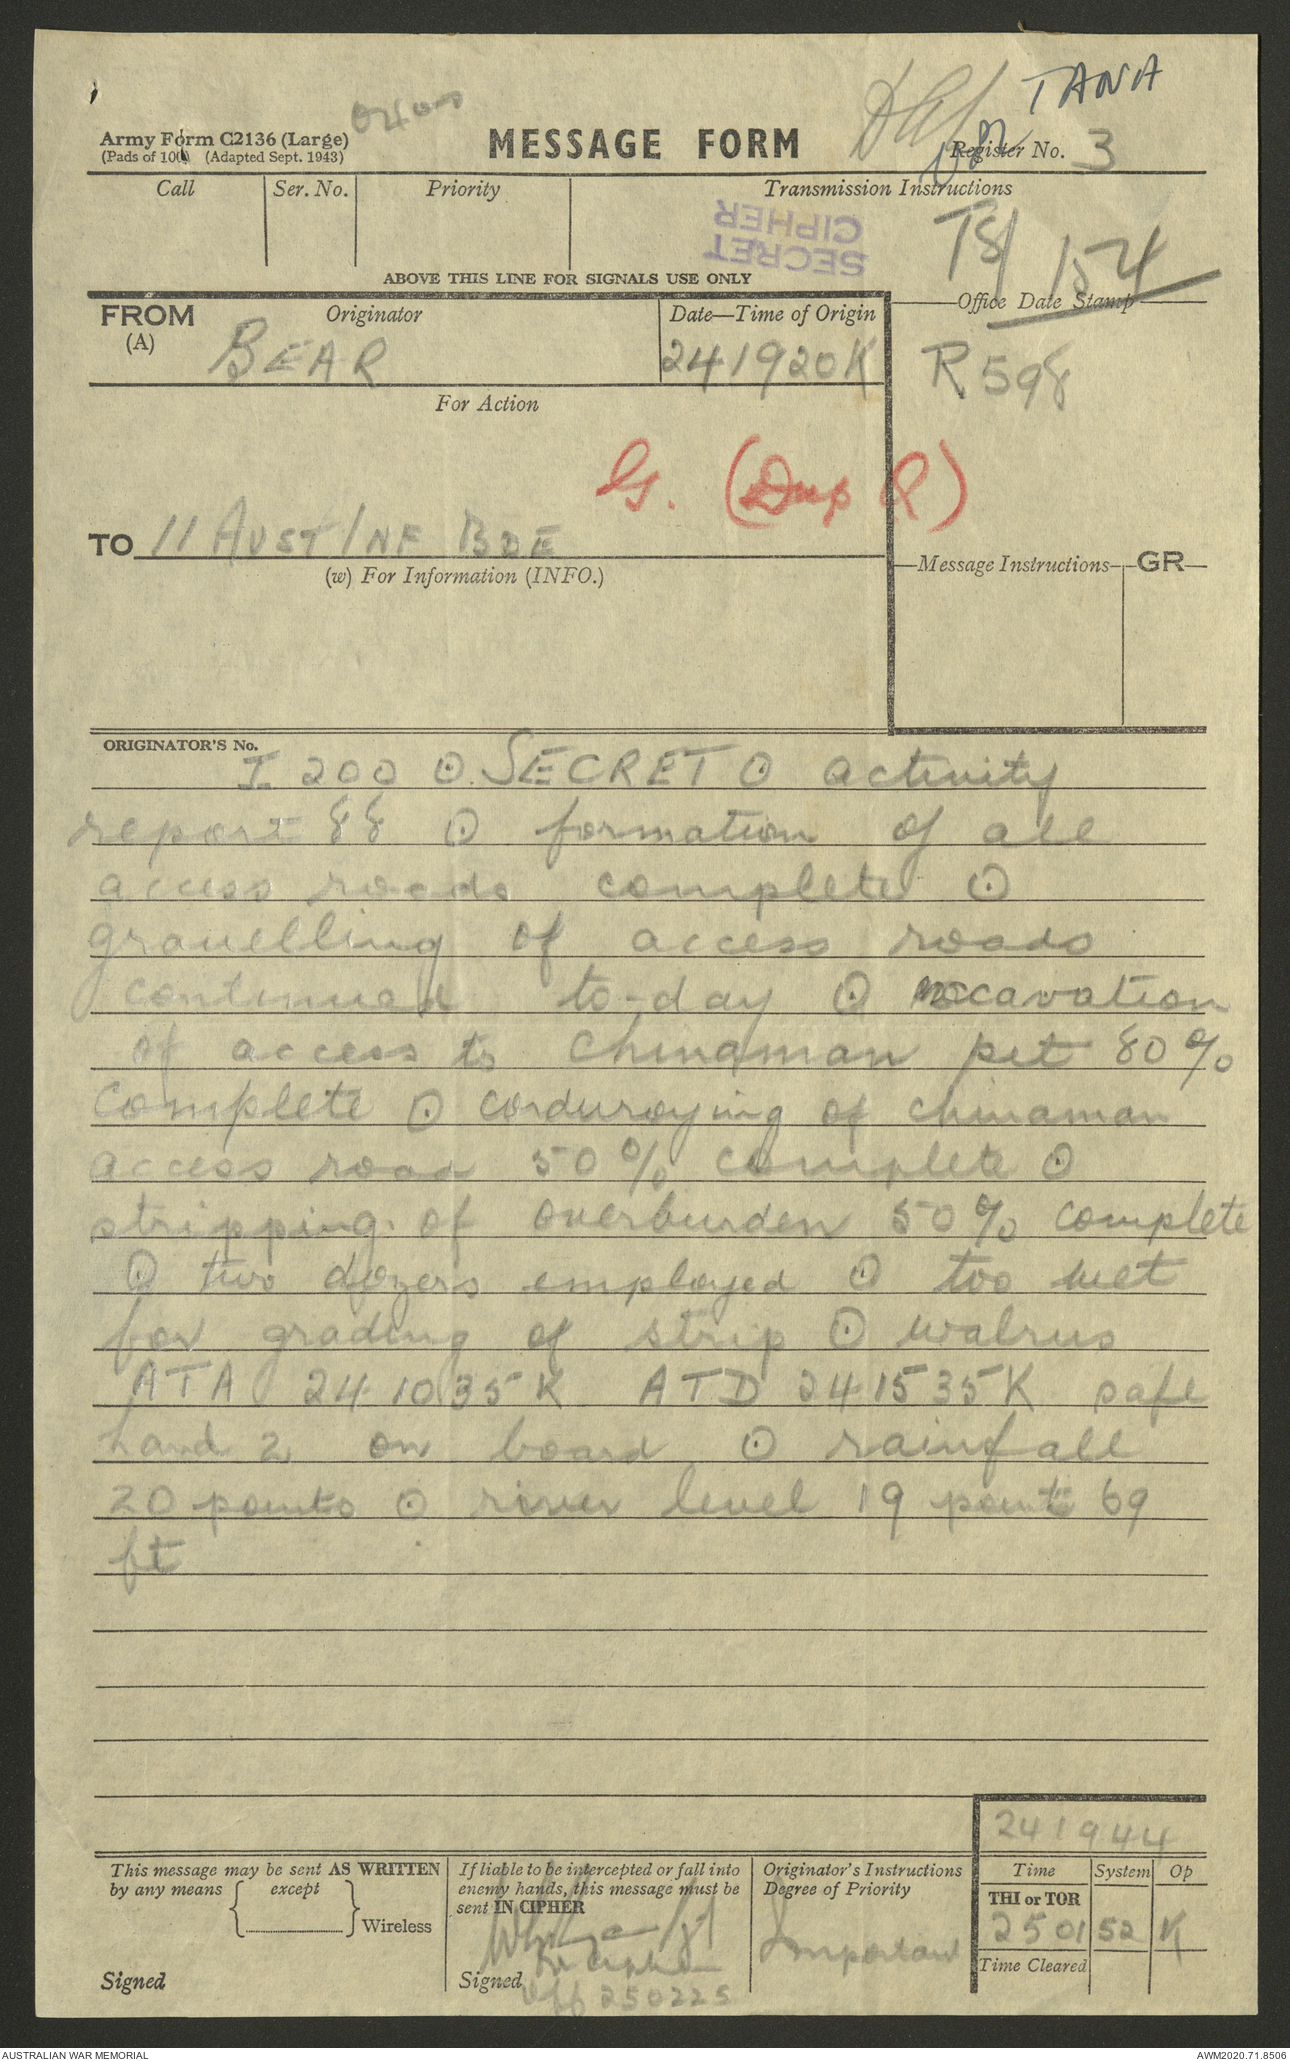 TANA
Army Form C2136 (Large)
(Pads of 100 (Adapted Sept. 1943)
MESSAGE FORM
Register No. 3
Call Ser. No. Priority Transmission Instructions
SECRET
CIPHER
T8/154
ABOVE THIS LINE FOR SIGNALS USE ONLY
FROM Originator Date—Time of Origin Office Date Stamp
(A) BEAR 241920K R598
For Action
G. (Dup R)
TO 11 AUST INF BDE
(w) For Information (INFO.) Message Instructions GR
ORIGINATOR'S No.
I 200 ⊙ SECRET ⊙ activity
report 88 ⊙ formation of all
access roads complete ⊙
gravelling of access roads
continued to-day ⊙ excavation
of access to chinaman pit 80%
complete ⊙ corduroying of chinaman
access road 50% complete ⊙
stripping of overburden 50% complete
⊙ two dozers employed ⊙ too wet
for grading of strip ⊙ walrus
ATA 241035K ATD 241535K safe
hand 2 on board ⊙ rainfall
20 points ⊙ river level 19 point 69
ft
241944
This message may be sent AS WRITTEN
by any means except
Wireless
Signed
If liable to be intercepted or fall into
enemy hands, this message must be
sent IN CIPHER
Signed
250225
Originator's Instructions
Degree of Priority
Important
Time System Op
THI or TOR
250152 K
Time Cleared
AUSTRALIAN WAR MEMORIAL AWM2020.71.8506